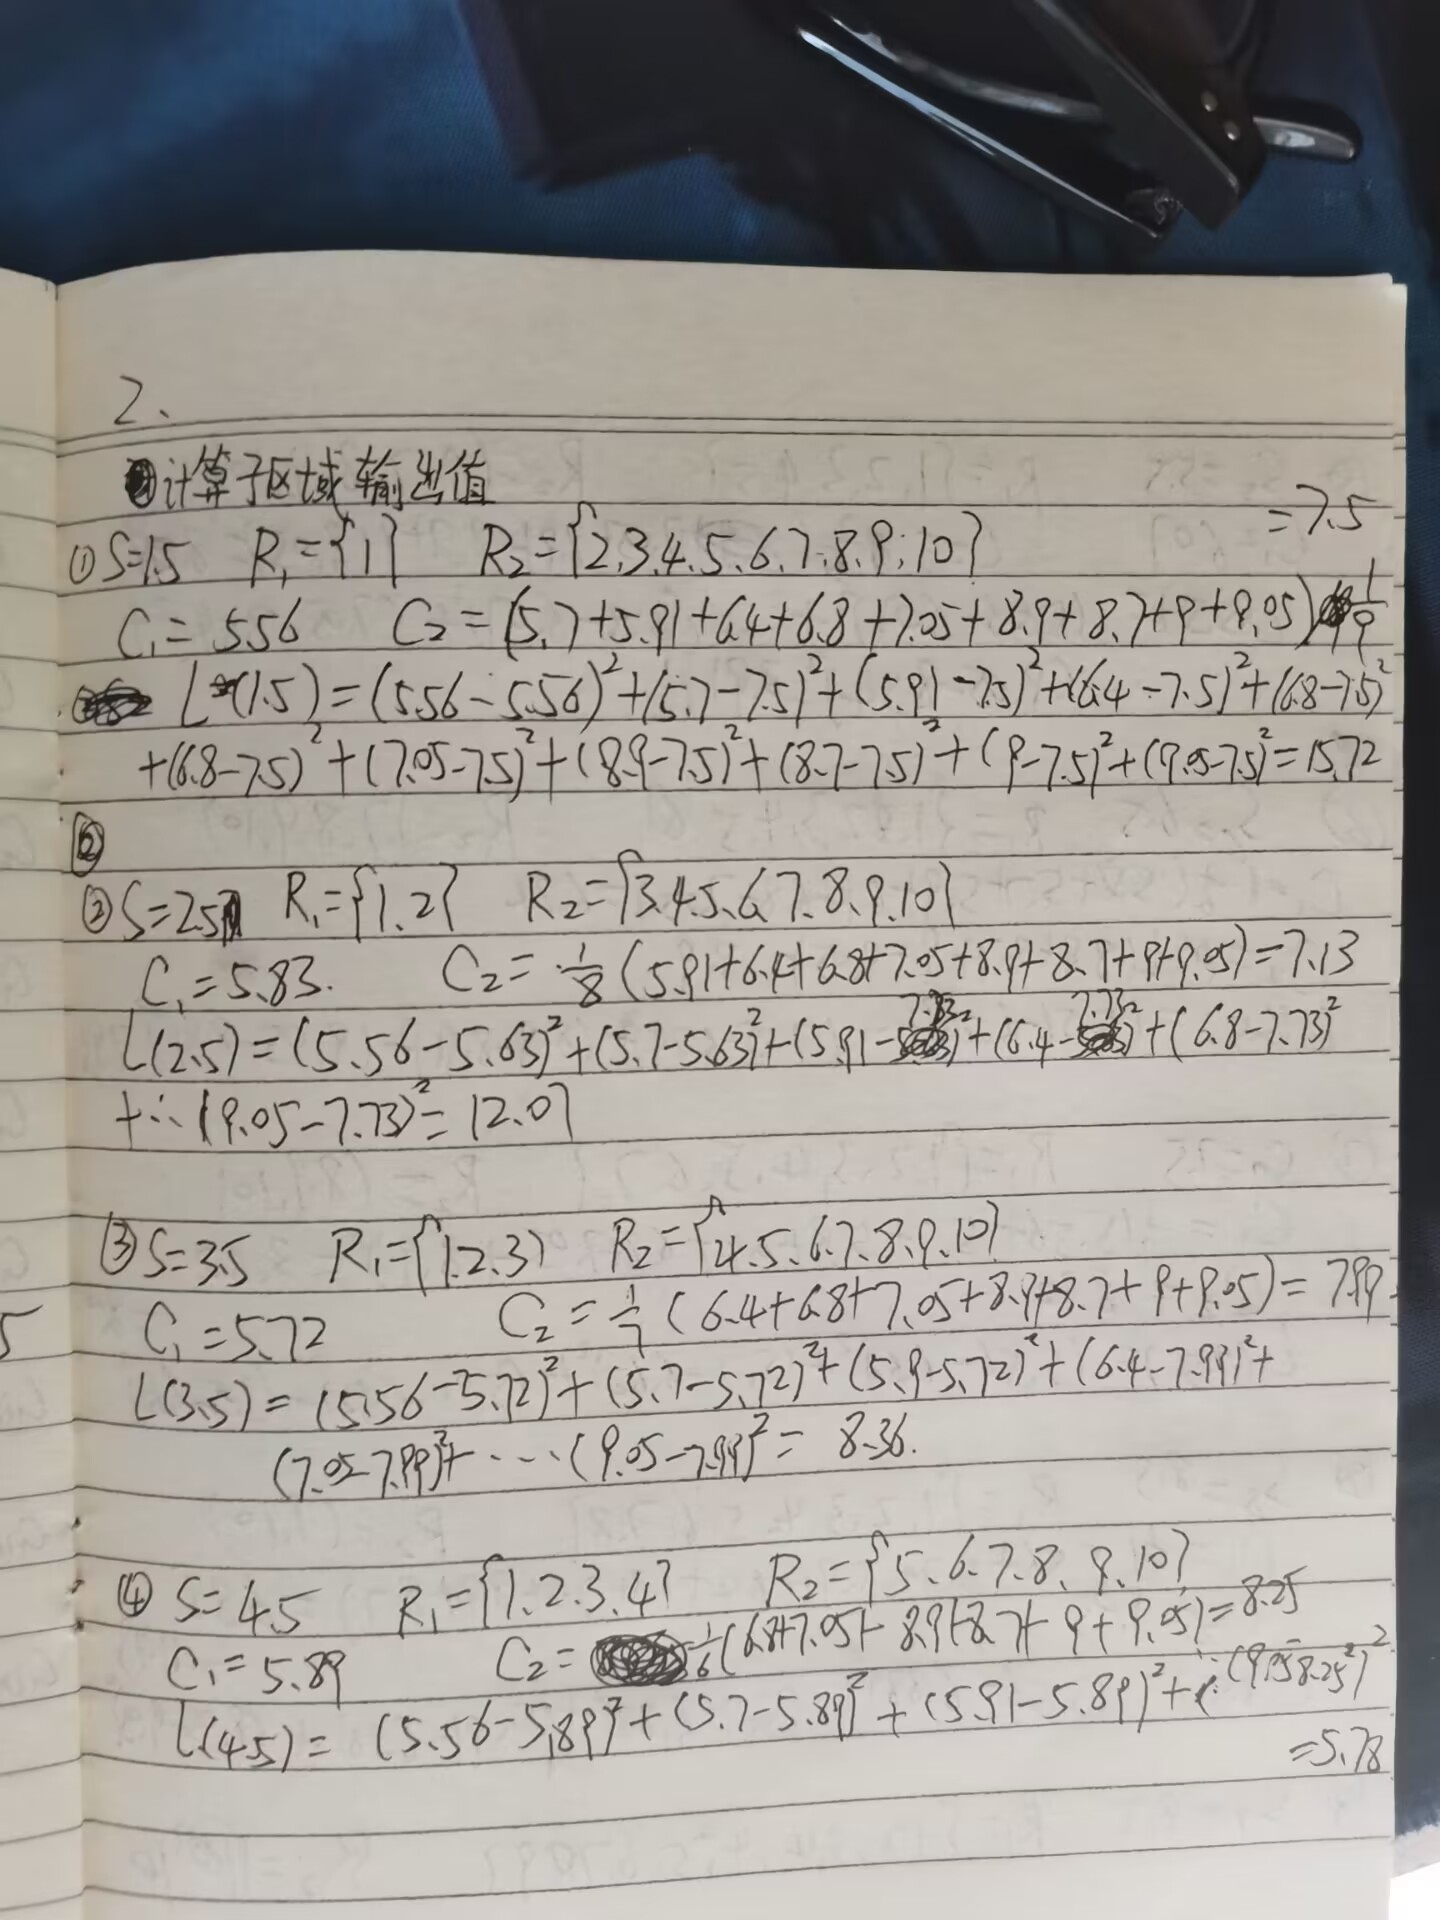 2.
计算子区域输出值
=7.5
①S=1.5 R₁={1} R₂={2.3.4.5.6.7.8.9.10}
C₁=5.56 C₂=(5.7+5.91+6.4+6.8+7.05+8.9+8.7+9+9.05) 1/9
L(1.5)=(5.56-5.56)²+(5.7-7.5)²+(5.91-7.5)²+(6.4-7.5)²+(6.8-7.5)²
+(6.8-7.5)²+(7.05-7.5)²+(8.9-7.5)²+(8.7-7.5)²+(9-7.5)²+(9.05-7.5)²=15.72
②
②S=2.5 R₁={1.2} R₂={3.4.5.6.7.8.9.10}
C₁=5.83. C₂=1/8(5.91+6.4+6.8+7.05+8.9+8.7+9+9.05)=7.13
L(2.5)=(5.56-5.63)²+(5.7-5.63)²+(5.91-7.73)²+(6.4-7.73)²+(6.8-7.73)²
+∴(9.05-7.73)²=12.07
5
③S=3.5 R₁={1.2.3} R₂={4.5.6.7.8.9.10}
C₁=5.72 C₂=1/7(6.4+6.8+7.05+8.9+8.7+9+9.05)=7.99
L(3.5)=(5.56-5.72)²+(5.7-5.72)²+(5.9-5.72)²+(6.4-7.99)²+
(7.05-7.99)²+……(9.05-7.99)²=8.36.
④S=4.5 R₁={1.2.3.4} R₂={5.6.7.8.9.10}
C₁=5.89 C₂=1/6(6.8+7.05+8.9+8.7+9+9.05)=8.25
L(4.5)=(5.56-5.89)²+(5.7-5.89)²+(5.91-5.89)²+…(9.05-8.25²)²
=5.78